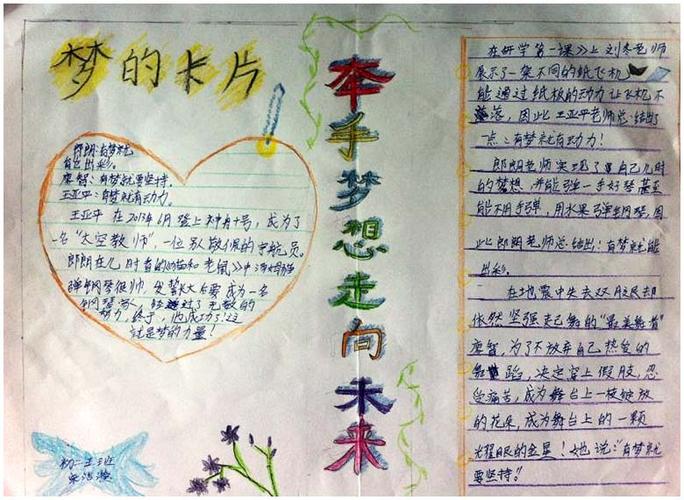 梦的卡片
郎朗:有梦就
能出彩。
廖智:有梦就要坚持。
王亚平:有梦就有动力。
王亚平 在2013年6月登上神舟十号，成为了
一名"太空教师"一位别敬佩的宇航员。
郎朗在儿时看的《猫和老鼠》中
弹钢琴很帅 发誓长大后要成为一名
钢琴家，经过了无数的
努力，终于，他成功了!这
就是梦的力量!
初一
牵手梦想走向未来
在《开学第一课》上刘冬老师
展示了一架不同的纸飞机
能通过纸板的动力让飞机不
落，因此王亚平老师总结出了
一点:有梦就有动力!
郎朗老师实现了自己儿时
的梦想,并能弹一手好琴甚至
能不用手弹，用水果弹钢琴,因
此郎朗老师总结出:有梦就能
出彩。
在地震中失去双腿却
依然坚强走起舞的"最美舞者"
廖智，为了不放弃自己热爱的
舞蹈，决定穿上假肢，忍
受痛苦，成为舞台上一枝绽放
的花朵，成为舞台上的一颗
光耀眼的金星!她说:"有梦就
要坚持"!